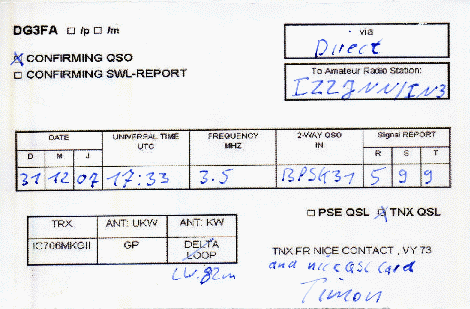 DG3FA □ /p □ /m
via
Direct
☒ CONFIRMING QSO
□ CONFIRMING SWL-REPORT
To Amateur Radio Station:
IZ2JNN/IN3
DATE UNIVERSAL TIME UTC FREQUENCY MHZ 2-WAY QSO IN Signal REPORT
D M J R S T
31 12 07 17:33 3.5 BPSK31 5 9 9
□ PSE QSL ☒ TNX QSL
TRX ANT: UKW ANT: KW
IC706MKGII GP DELTA LOOP
LW.82m
TNX FR NICE CONTACT , VY 73
and nice QSL Card
Timon